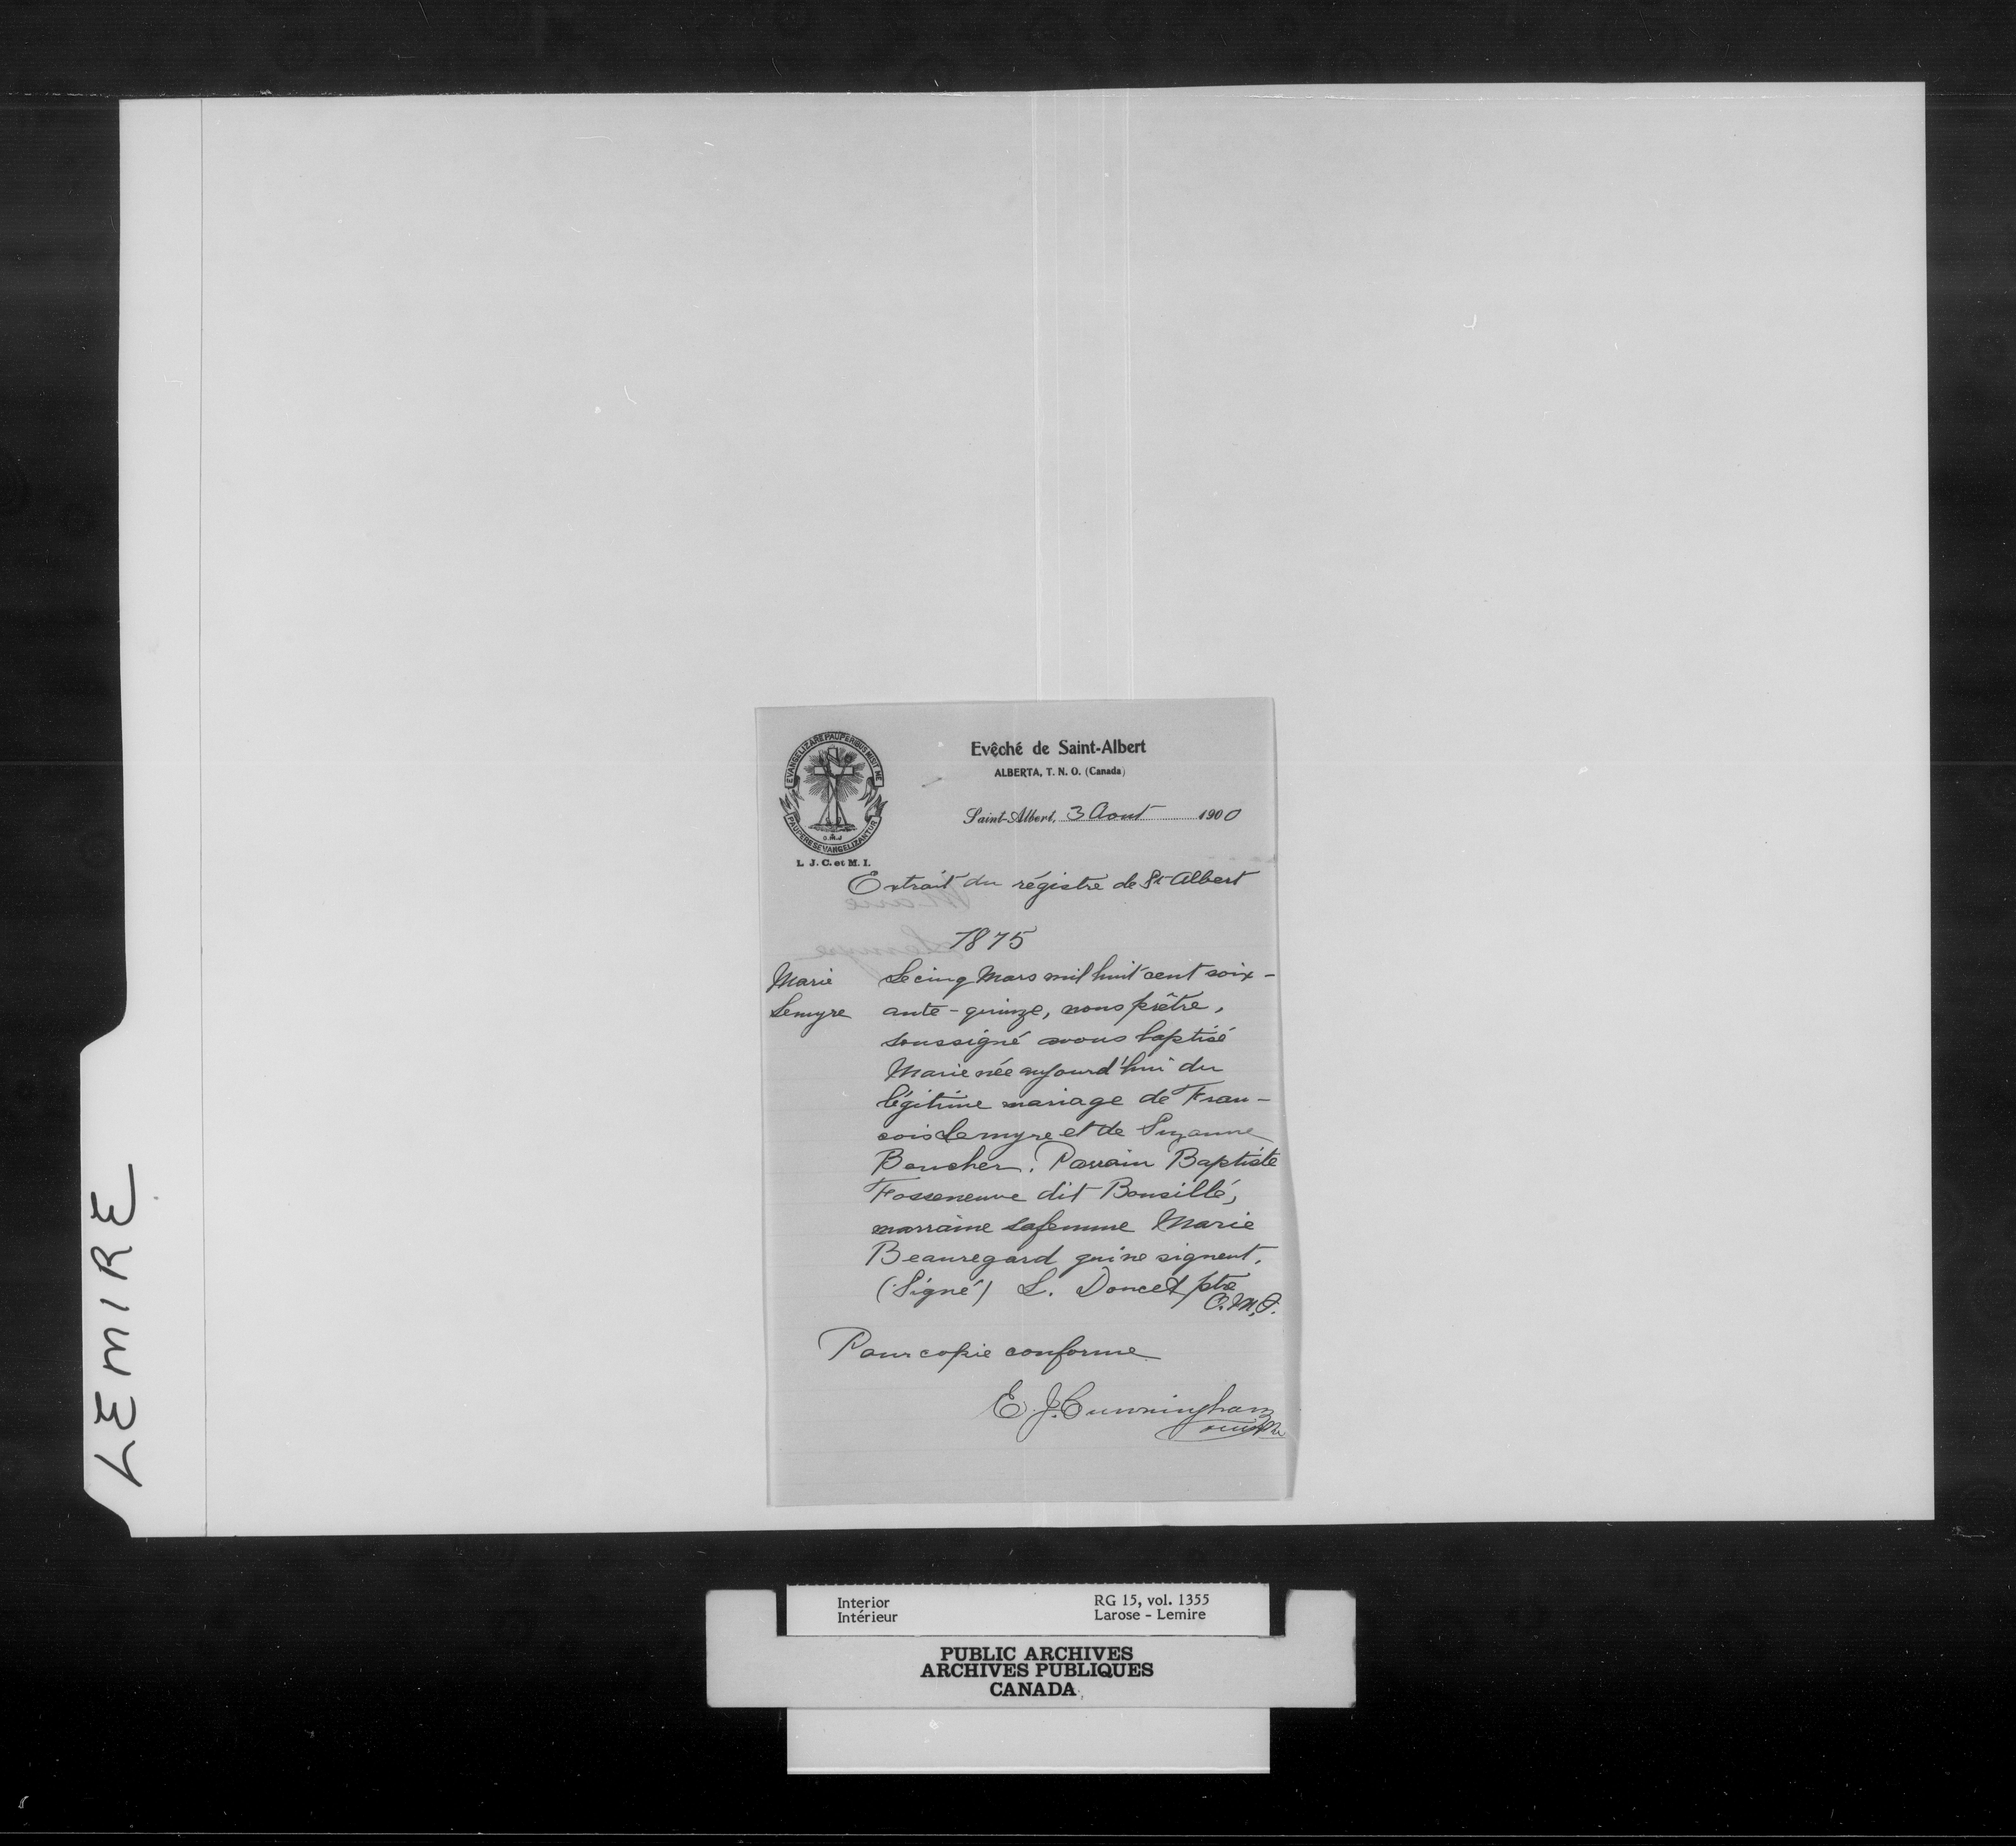 LEMIRE
EVANGELIZARE PAUPERIBUS MISIT ME
PAUPERES EVANGELIZANTUR
O.M.I
L. J. C. et M. I.
Evêché de Saint-Albert
ALBERTA, T. N. O. (Canada)
Saint-Albert, 3 Aout 1900
Extrait du régistre de St Albert
1875
Marie
Lemyre
Le cinq Mars mil huit cent soix-
ante-quinze, nous prêtre,
soussigné avons baptisé
Marie née aujourd'hui du
légitime mariage de Fran-
cois Lemyre et de Suzanne
Boucher. Parrain Baptiste
Fosseneuve dit Bousillé,
marraine sa femme Marie
Beauregard qui ne signent.
(Signé) L. Doucet ptre
O.M.I.
Pour copie conforme
E. J. Cunningham
Interior
Intérieur
RG 15, vol. 1355
Larose - Lemire
PUBLIC ARCHIVES
ARCHIVES PUBLIQUES
CANADA